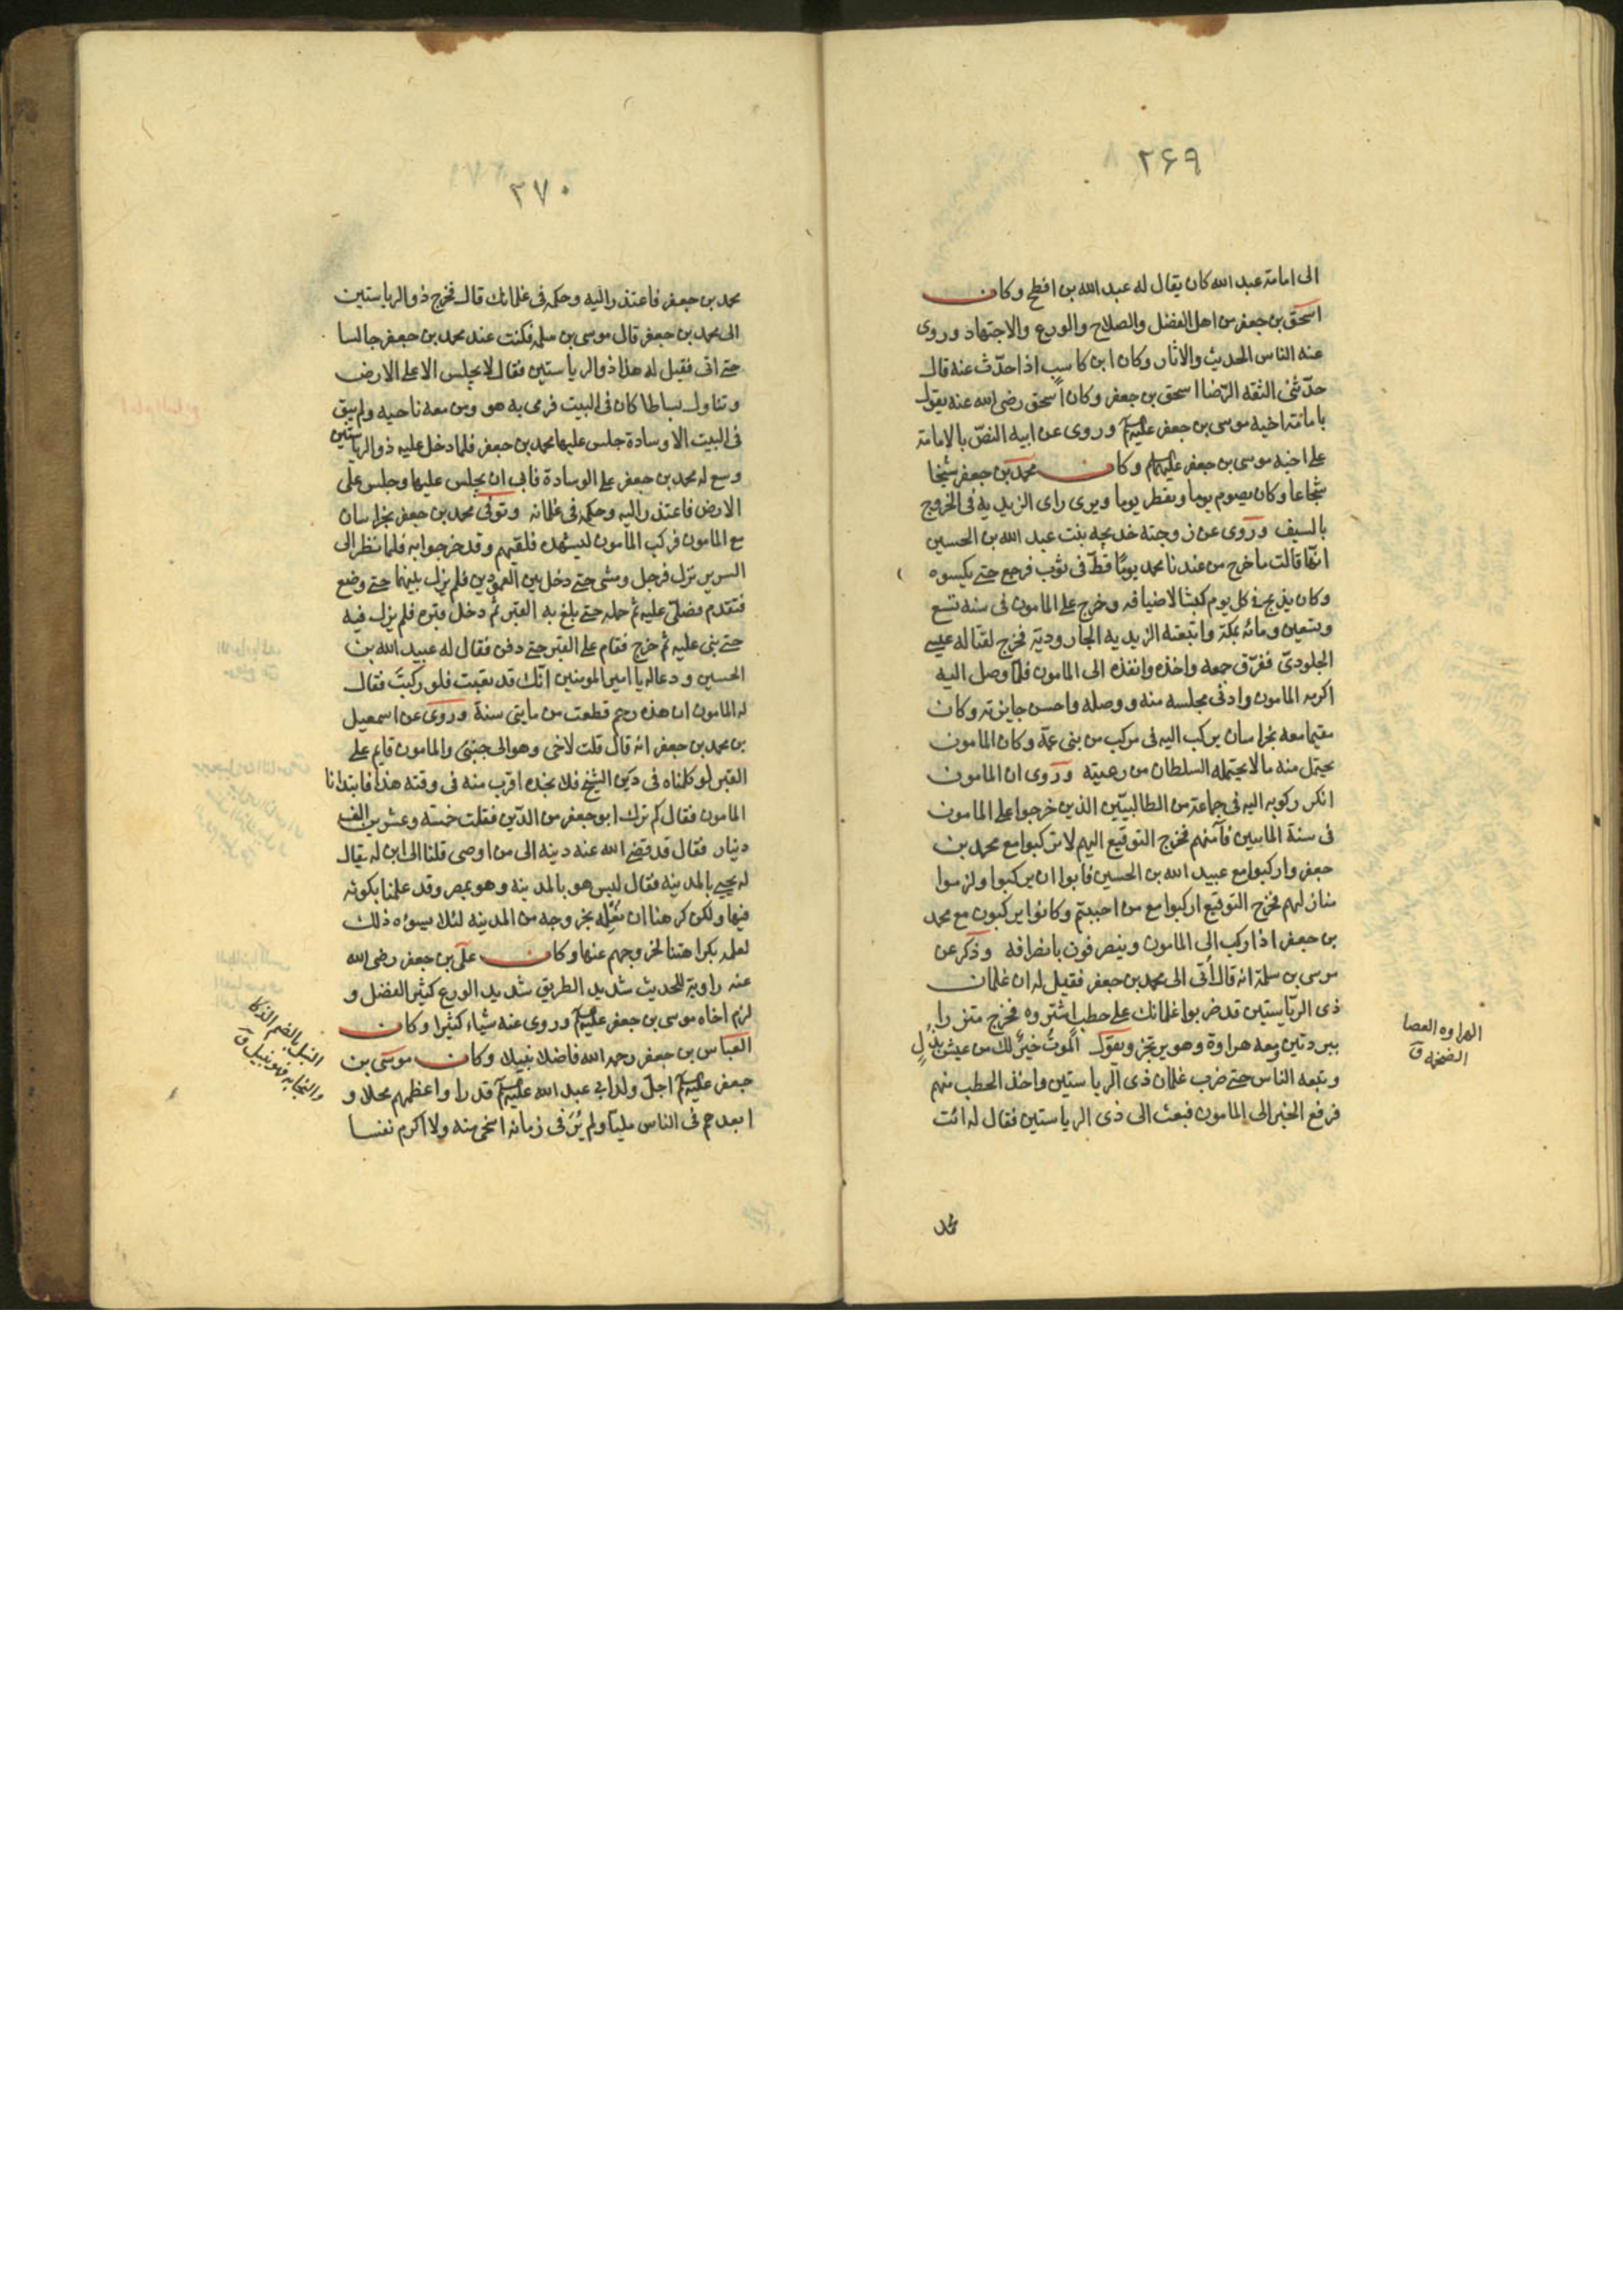 ۲۶۹
الى امامة عبد الله كان يقال له عبد الله بن افطح وكان
اسحق بن جعفر من اهل الفضل والصلاح والورع والاجتهاد وروى
عنه الناس الحديث والاثار وكان ابن كاسب اذا حدّث عنه قال
حدّثنى الثقه الرّضا اسحق بن جعفر وكان اسحق رضى الله عنه يقول
بامامة اخيه موسى بن جعفر عليهم وروى عن ابيه النصّ بالامامة
على اخيه موسى بن جعفر عليهم وكان محمد بن جعفر شيخا
شجاعا وكان يصوم يوما ويفطر يوما ويرى راى الزيديه فى الخروج
بالسيف وروى عن زوجته خديجه بنت عبد الله بن الحسين
انّها قالت ما خرج من عندنا محمد يومًا قطّ فى ثوب فرجع حتى يكسوه
وكان يذبح فى كل يوم كبشا لاضيافه وخرج على المامون فى سنه تسع
وتسعين ومائه بمكة واتبعته الزيديه الجاروديّة فخرج لقتاله عيسى
الجلودىّ ففرّق جمعه واخذه وانفذه الى المامون فلمّا وصل اليه
اكرمه المامون وادنى مجلسه منه ووصله واحسن جايزته وكان
مقيما معه بخراسان يركب اليه فى موكب من بنى عمّه وكان المامون
يحتمل منه ما لا يحتمله السلطان من رعيته وروى ان المامون
انكر ركوبه اليه فى جماعة من الطالبيّين الذين خرجوا على المامون
فى سنة المايتين فآمنهم فخرج التوقيع اليهم لا تركبوا مع محمد بن
جعفر واركبوا مع عبيد الله بن الحسين فابوا ان يركبوا ولزموا
منازلهم فخرج التوقيع اركبوا مع من احببتم وكانوا يركبون مع محمد
بن جعفر اذا ركب الى المامون وينصرفون بانصرافه وذكر عن
موسى بن سلمة انه قال أتى الى محمد بن جعفر فقيل له ان غلمان
ذى الرّياستين قد ضربوا غلمانك على حطب اشتروه فخرج متزرا
ببردتين معه هراوة وهو يرتجز ويقول الموتُ خيرٌ لك من عيش بذلٍ
وتبعه الناس حتى ضرب غلمان ذى الرياستين واخذ الحطب منهم
فرفع الخبر الى المامون فبعث الى ذى الرياستين فقال له ائت
الهراوه العصا
الضخمه ق
محمد
۲۷۰
محمد بن جعفر فاعتذر اليه وحكمه فى غلمانك قال فخرج ذو الرياستين
الى محمد بن جعفر قال موسى بن سلمه فكنت عند محمد بن جعفر جالسا
حتى اتى فقيل له هذا ذو الرياستين فقال لا يجلس الا على الارض
وتناول بساطا كان فى البيت فرمى به هو ومن معه ناحيه ولم يبق
فى البيت الا وسادة جلس عليها محمد بن جعفر فلما دخل عليه ذو الرياستين
وسع له محمد بن جعفر على الوسادة فابى ان يجلس عليها وجلس على
الارض فاعتذر اليه وحكمه فى غلمانه وتوفى محمد بن جعفر بخراسان
مع المامون فركب المامون ليشهده فلقيهم وقد خرجوا به فلما نظر الى
السرير نزل فرجل ومشى حتى دخل بين العمودين فلم يزل بينهما حتى وضع
فتقدم فصلى عليه ثم حمله حتى بلغ به القبر ثم دخل قبره فلم يزل فيه
حتى بنى عليه ثم خرج فقام على القبر حتى دفن فقال له عبيد الله بن
الحسين ودعا له يا امير المومنين انّك قد تعبت فلو ركبتَ فقال
له المامون ان هذه رحم قطعت من مايتى سنة وروى عن اسمعيل
بن محمد بن جعفر انه قال قلت لاخى وهو الى جنبى والمامون قايم على
القبر لو كلمناه فى دين الشيخ فلا نجده اقرب منه فى وقته هذا فابتدانا
المامون فقال كم ترك ابو جعفر من الدّين فقلت خمسه وعشرين الف
دينار فقال قد قضى الله عنه دينه الى من اوصى قلنا الى ابن له يقال
له يحيى بالمدينه فقال ليس هو بالمدينه وهو بمصر وقد علمنا بكونه
فيها ولكن كرهنا ان نعلمه بخروجه من المدينه لئلا يسوءه ذلك
لعلمه بكراهتنا لخروجهم عنها وكان علىّ بن جعفر رضى الله
عنه راوية للحديث شديد الطريق شديد الورع كثير الفضل و
لزم اخاه موسى بن جعفر عليهم وروى عنه شياء كثيرا وكان
العباس بن جعفر رحمه الله فاضلا نبيلا وكان موسى بن
جعفر عليهم اجلّ ولد ابى عبد الله عليهم قدرا واعظمهم محلا و
ابعدهم فى الناس صيتا ولم يُرَ فى زمانه اسخى منه ولا اكرم نفسا
النبل بالضم الذكا
والنجابه فهو نبيل ق